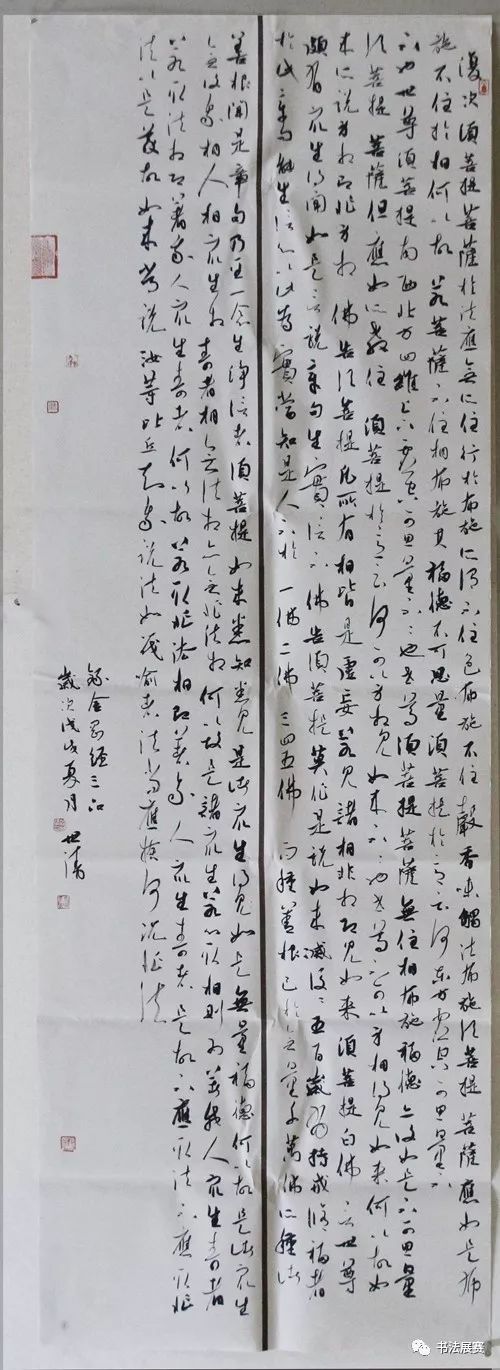 復次須菩提菩薩於法應無所住行於布施所謂不住色布施不住聲香味觸法布施須菩提菩薩應如是布
施不住於相何以故若菩薩不住相布施其福德不可思量須菩提於意云何東方虛空可思量不
不也世尊須菩提南西北方四維上下虛空可思量不不也世尊須菩提菩薩無住相布施福德亦復如是不可思量
須菩提菩薩但應如所教住須菩提於意云何可以身相見如來不不也世尊不可以身相得見如來何以故如
來所說身相即非身相佛告須菩提凡所有相皆是虛妄若見諸相非相即見如來須菩提白佛言世尊
頗有眾生得聞如是言說章句生實信不佛告須菩提莫作是說如來滅後後五百歲有持戒修福者
於此章句能生信心以此為實當知是人不於一佛二佛三四五佛而種善根已於無量千萬佛所種諸
善根聞是章句乃至一念生淨信者須菩提如來悉知悉見是諸眾生得如是無量福德何以故是諸眾生
無復我相人相眾生相壽者相無法相亦無非法相何以故是諸眾生若心取相則為著我人眾生壽者
若取法相即著我人眾生壽者何以故若取非法相即著我人眾生壽者是故不應取法不應取非
法以是義故如來常說汝等比丘知我說法如筏喻者法尚應捨何況非法
錄金剛經三品
歲次戊戌夏月 世
书法展赛